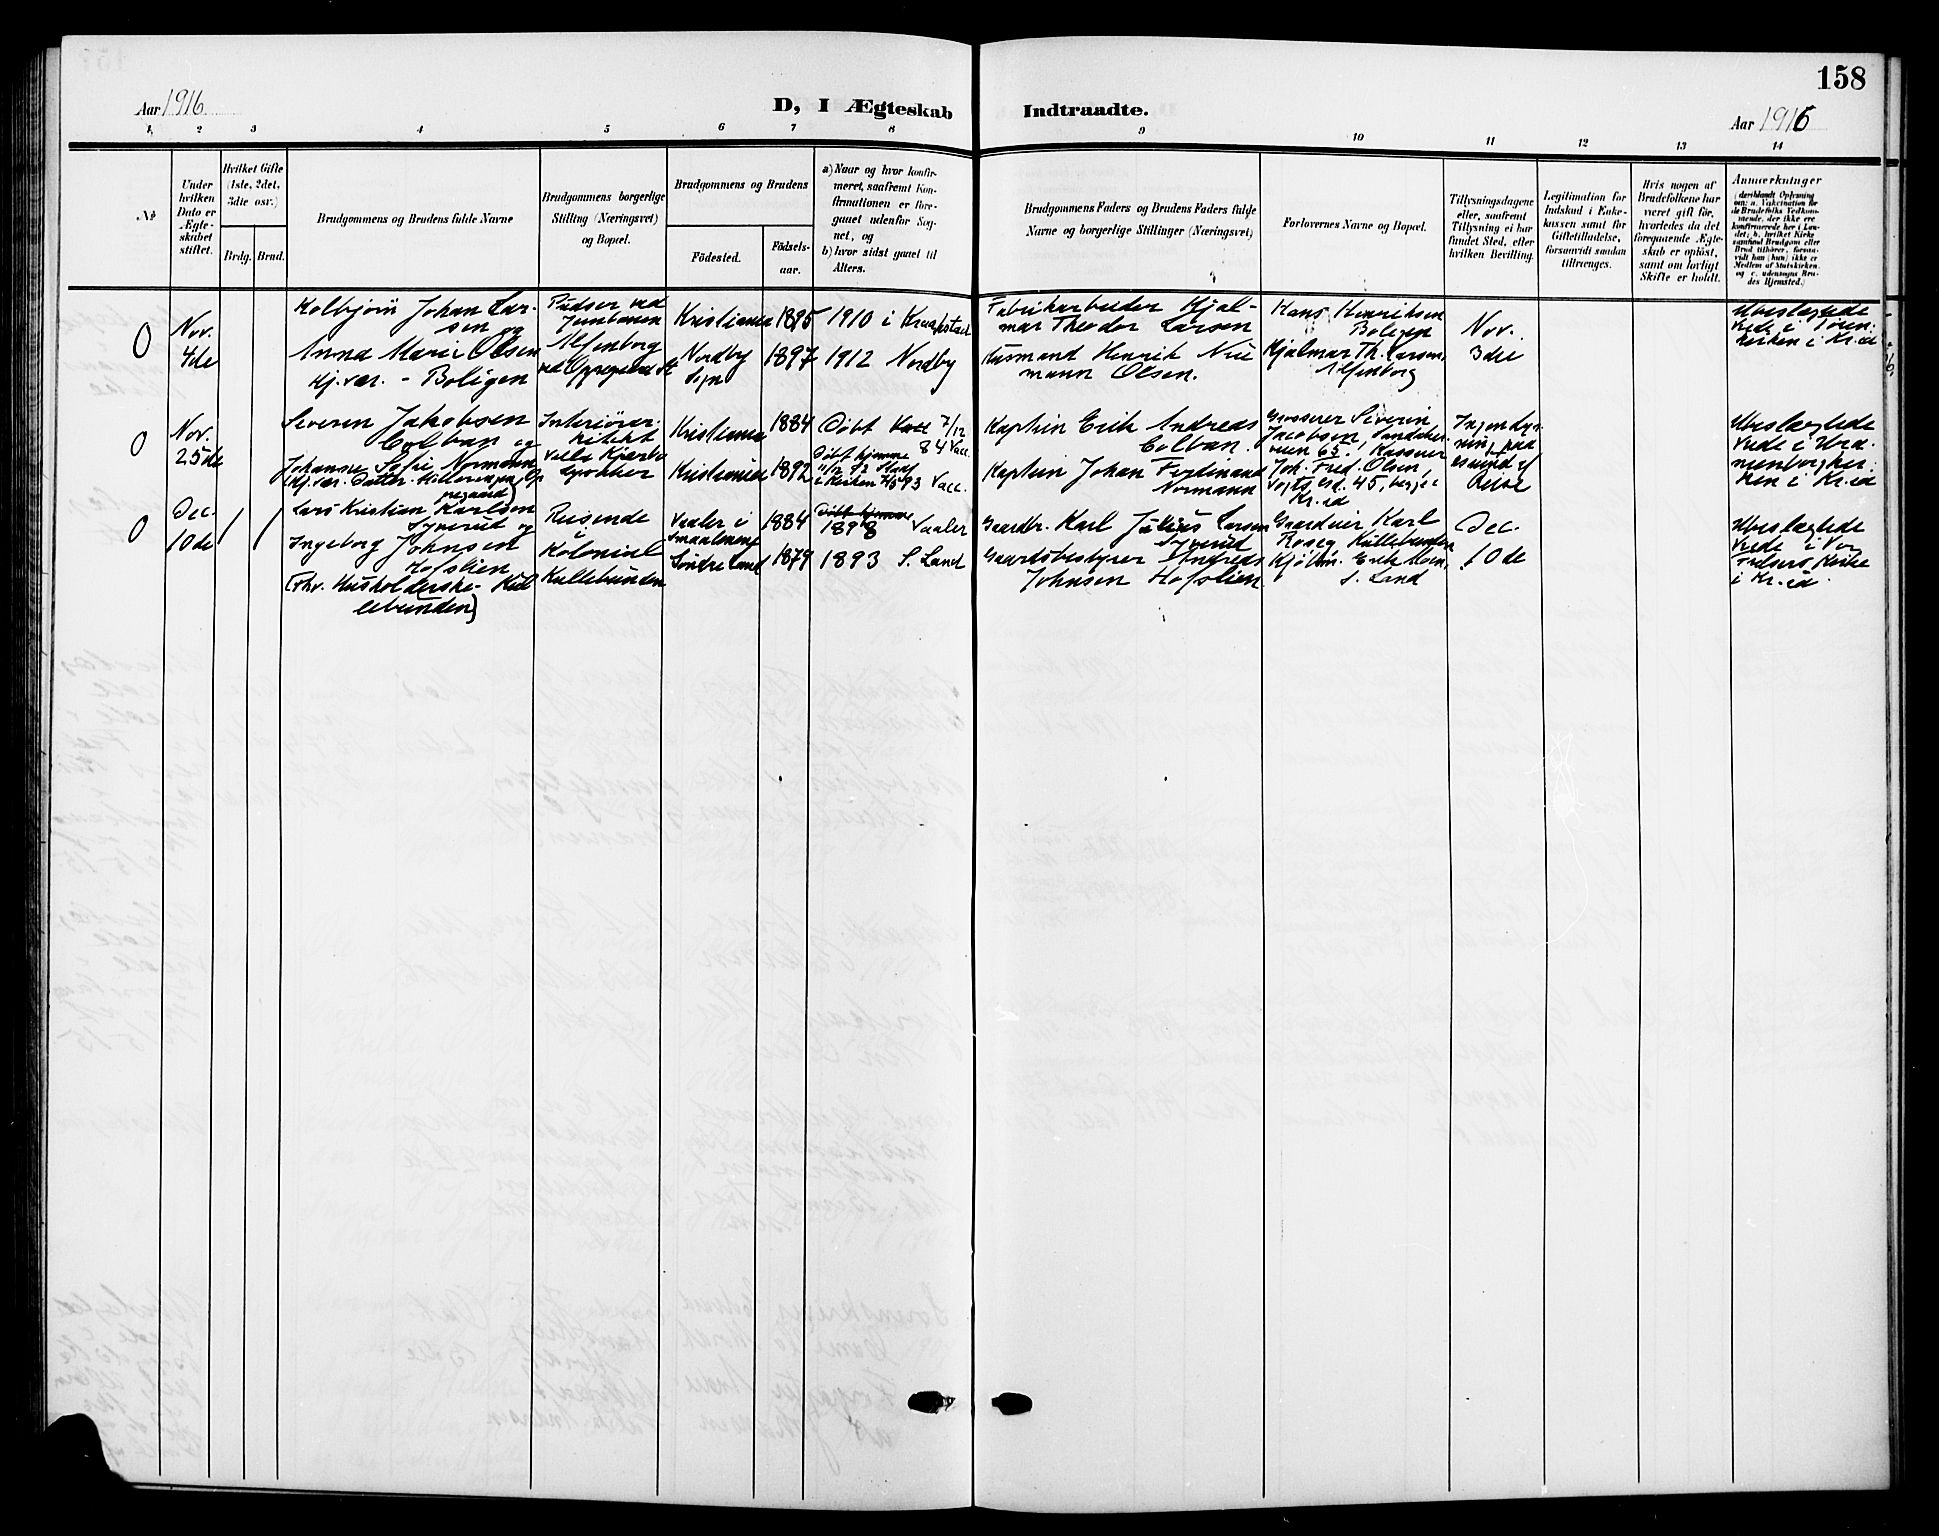 158
Aar 1916
D, I Ægteskab Indtraadte.
Aar 1916
1. 2 3 4 5 6 7 8 9 10 11 12 13 14
№
Under hvilken Dato er Ægteskabet stiftet.
Hvilket Gifte (1ste, 2det, 3die osv.)
Brdg. Brud.
Brudgommens og Brudens fulde Navne
Brudgommens borgerlige Stilling (Næringsvei) og Bopæl.
Brudgommens og Brudens
Födested.
Födselsaar.
a) Naar og hvor konfirmeret, saafremt Konfirmationen er foregaaet udenfor Sognet, og
b) hvor sidst gaaet til Alters.
Brudgommens Faders og Brudens Faders fulde Navne og borgerlige Stillinger (Næringsvei)
Forlovernes Navne og Bopæl.
Tillysningsdagene eller, saafremt Tillysning ei har fundet Sted, efter hvilken Bevilling.
Legitimation for Indskud i Enkekassen samt for Giftetilladelse, forsaavidt saadan tiltrænges.
Hvis nogen af Brudefolkene har været gift för, hvorledes da det foregaaende Ægteskab er oplöst, samt om lovligt Skifte er holdt.
Anmærkninger
(deriblandt Oplysning om: a. Vakcination for de Brudefolks Vedkommende, der ikke ere konfirmerede her i Landet; b. hvilket Kirkesamfund Brudgom eller Brud tilhörer, forsaavidt han (hun) ikke er Medlem af Statskirken, og c. udensogns Brudes Hjemsted.)
0
Nov.
4de
Kolbjörn Johan Larsen og
Anna Marie Olsen
Hj.vær. - Boligen
Pudser ved
Jernbanen
ved Oppegaard St
Kristiania 1895 1910 i Kraakstad
Nordby Sogn 1897 1912 Nordby
Fabrikarbeider Hjalmar Theodor Larsen
Husmand Henrik Niemann Olsen.
Hans Henriksen
Boligen
Hjalmar Th. Larsen,
Nov.
3die
Ubeslægtede
Viede i Töienkirken i Kr.ia
0
Nov.
25de
Severin Jakobsen
Colban og
Johanne Sofie Normann
Kristiania 1884 Döbt 7/12 84 Vacc.
Kristiania 1892 Döbt hjemme
11/12 92 Stadf
i Kirken 7/5 93 Vacc.
Kaptein Erik Andreas
Colban.
Kaptein Johan Ferdinand
Normann
Grosserer Severin
Jacobsen, Sandakerveien 65, Kasserer
Joh. Fred. Olsen,
Vogts gd. 45, begge i
Kr.ia
Ingen Lysning, paa
Ubeslægtede
Viede i Uranienborgkirken i Kr.ia
0
Dec.
10de
/ /
Lars Kristian Karlsen
Syverud og
Ingeborg Johnsen
Hofslien
(Fhv. Husholderske - Kullebunden)
Reisende
Kolonial
Kullebunden
Vaaler i
Smaalenene 1884 1898 Vaaler
Söndre Land 1879 1893 S. Land
Gaardbr. Karl Julius Larsen
Syverud
Gaardsbestyrer Andreas
Johnsen Hofslien
Gaardeier Karl
Roseg Kullebunden
Kjöbm. Erik Moen,
S. Land
Dec.
10de
Ubeslægtede
Viede i Vor
Frelsers Kirke
i Kr.ia.